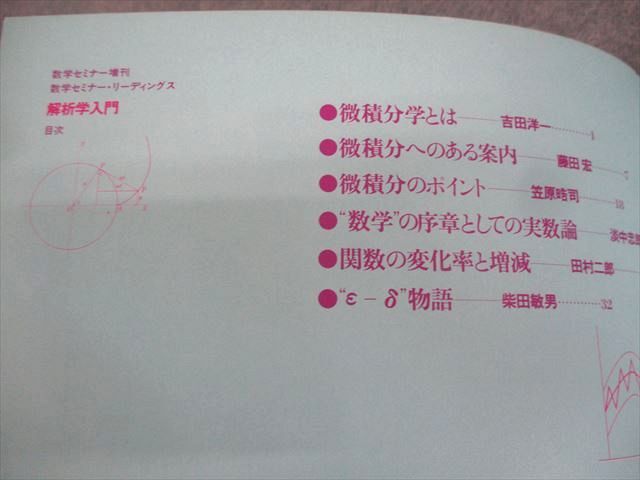 数学セミナー増刊
数学セミナー・リーディングス
解析学入門
目次
●微積分学とは——吉田洋一………1
●微積分へのある案内——藤田 宏………7
●微積分のポイント——笠原晧司………18
●“数学”の序章としての実数論——淡中忠郎
●関数の変化率と増減——田村二郎
●“ε－δ”物語——柴田敏男………32